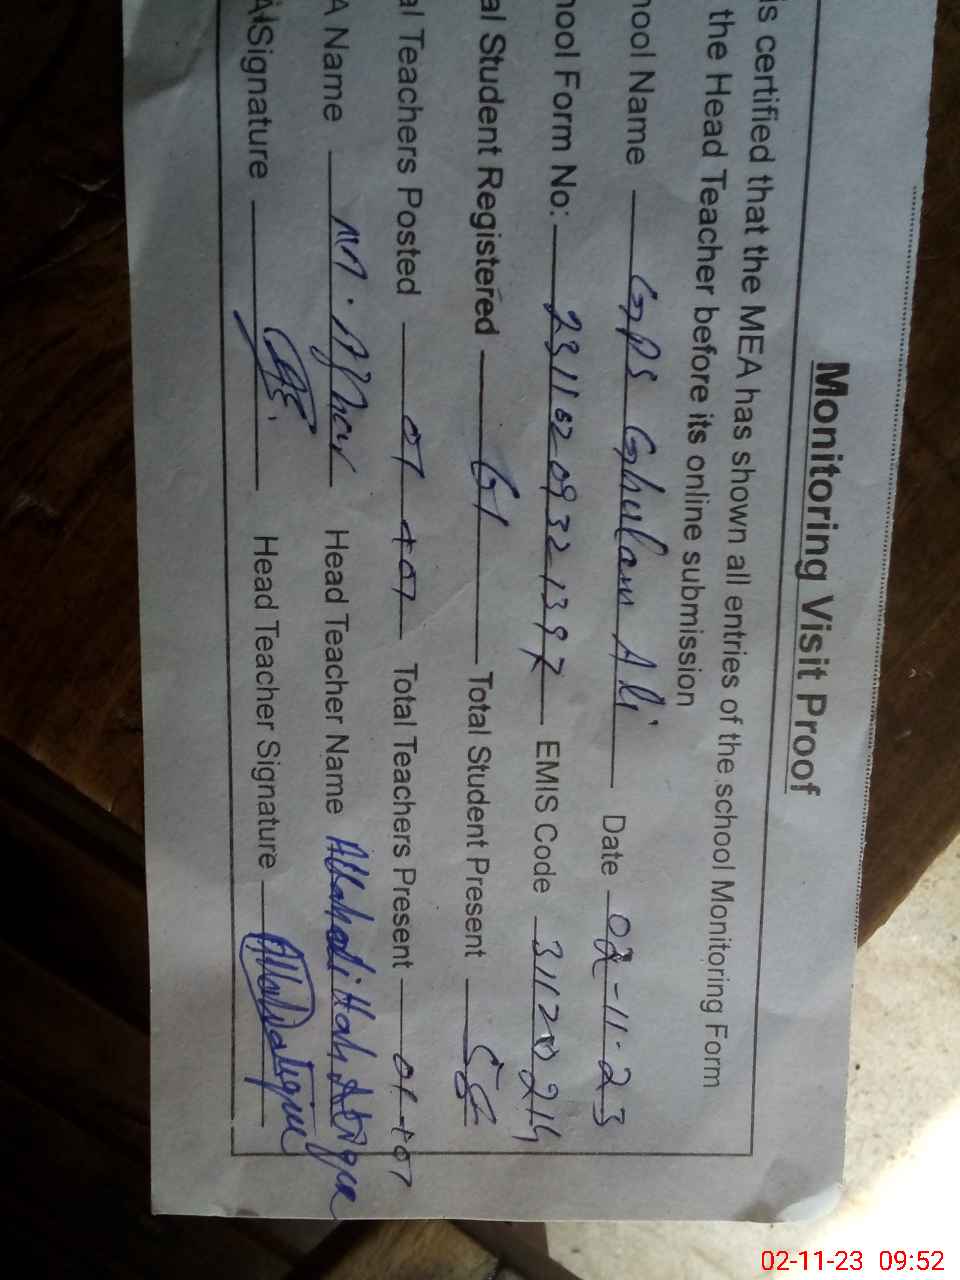 Monitoring Visit Proof
is certified that the MEA has shown all entries of the school Monitoring Form
the Head Teacher before its online submission
hool Name GPS Ghulam Ali Date 02-11-23
hool Form No: 23110209321397 EMIS Code
al Student Registered 61 Total Student Present
al Teachers Posted 01+01 Total Teachers Present 01+01
A Name M. Head Teacher Name
A Signature Head Teacher Signature
02-11-23 09:52